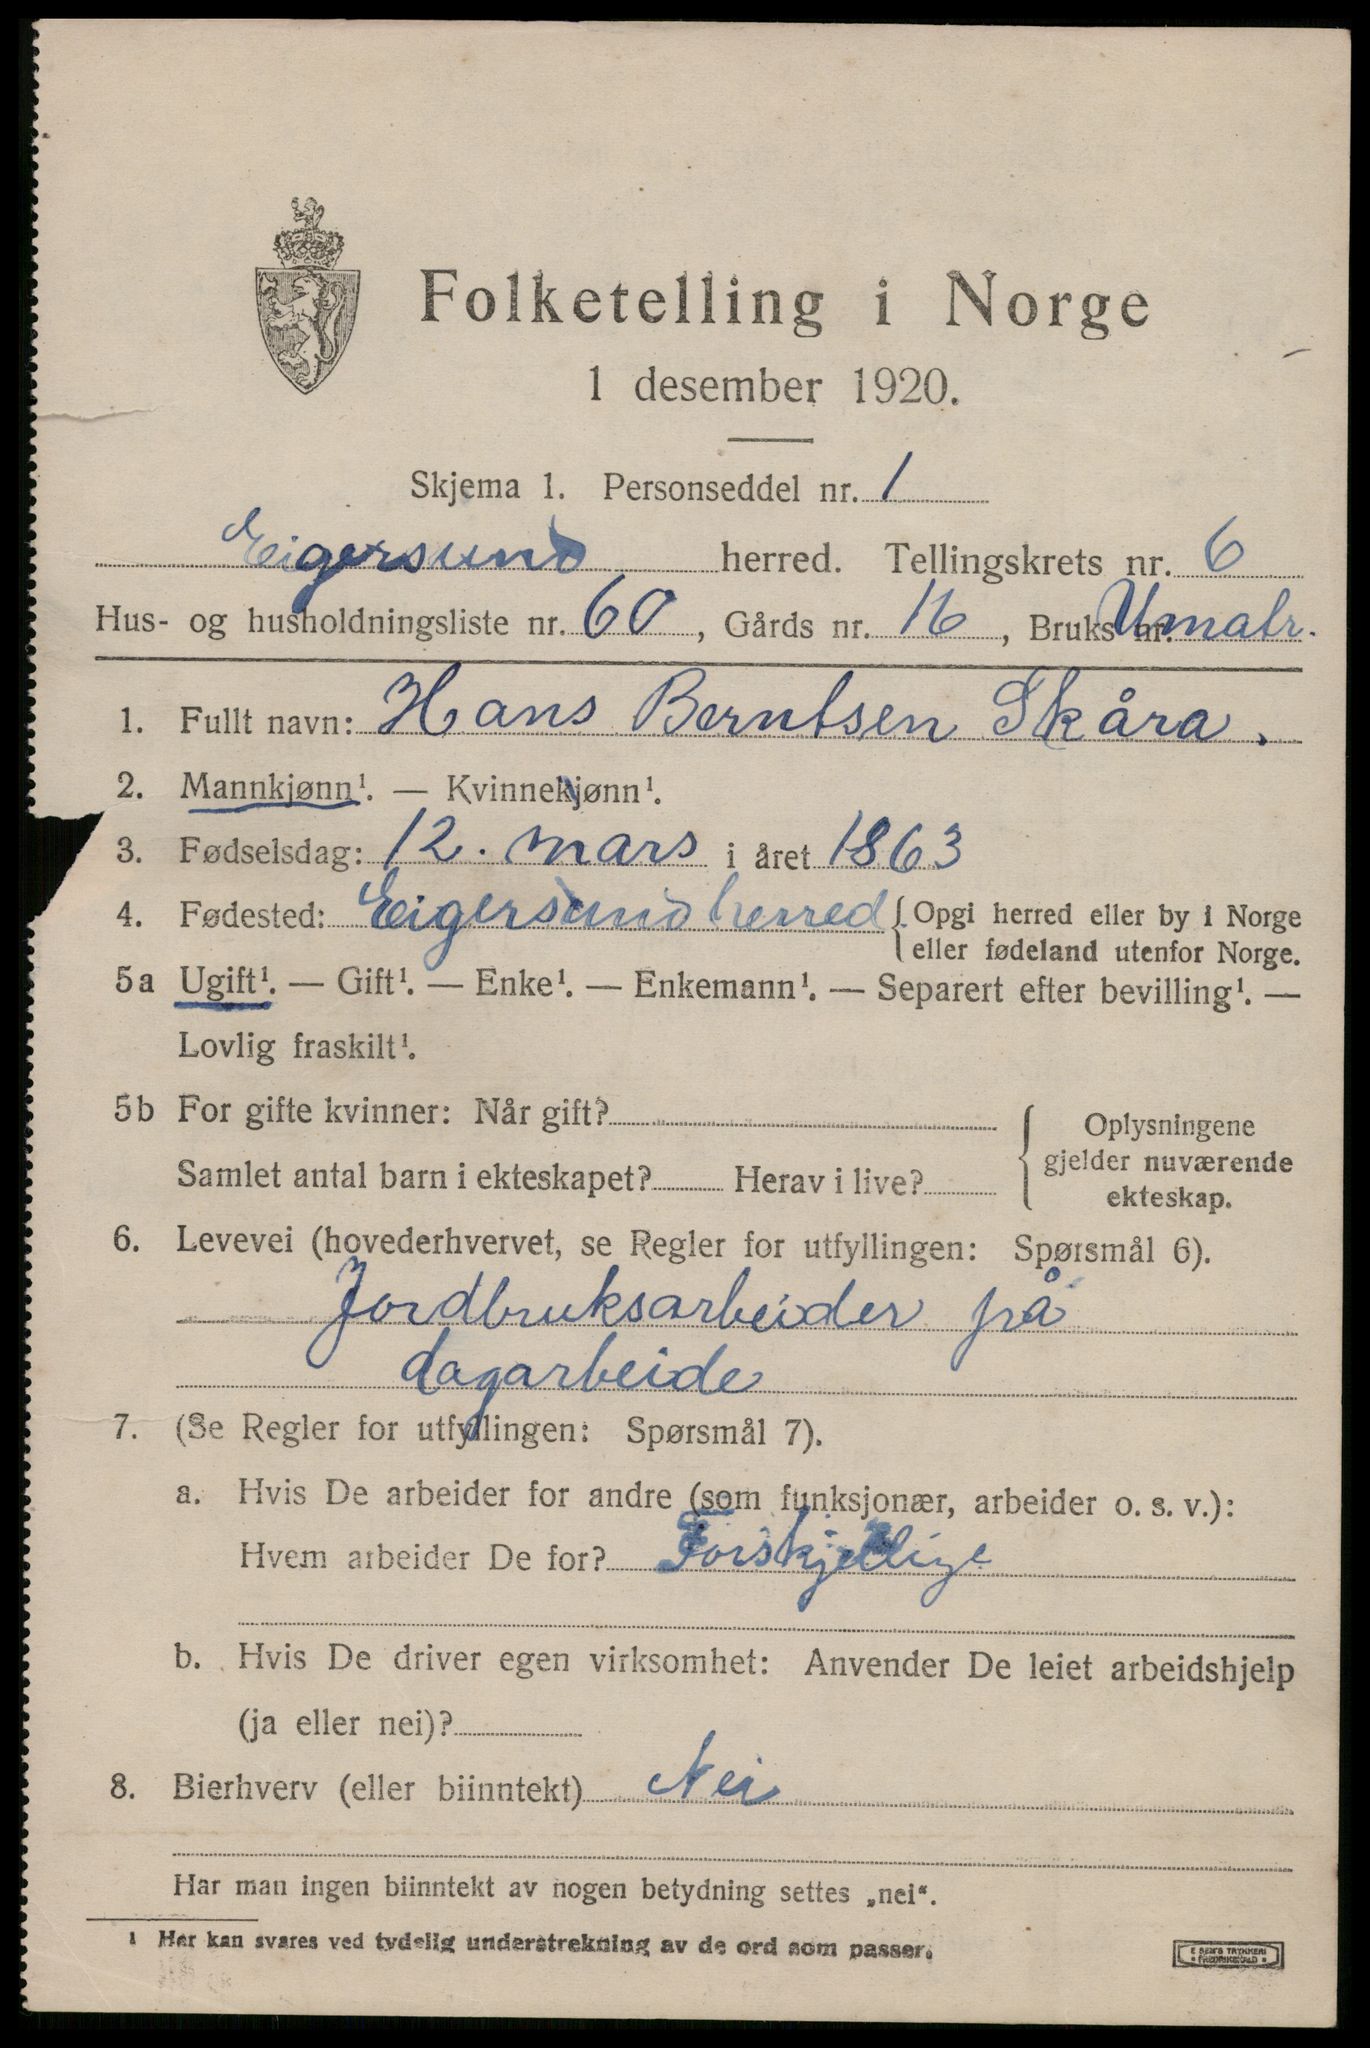 Folketelling i Norge
1 desember 1920.
Skjema 1. Personseddel nr. 1
Eigersund herred. Tellingskrets nr. 6
Hus- og husholdningsliste nr. 60, Gårds nr. 16, Bruks nr. Umatr.
1. Fullt navn: Hans Berntsen Skåra.
2. Mannkjønn¹. — Kvinnekjønn¹.
3. Fødselsdag: 12. mars i året 1863
4. Fødested: Eigersund herred { Opgi herred eller by i Norge
eller fødeland utenfor Norge.
5a Ugift¹. — Gift¹. — Enke¹. — Enkemann¹. — Separert efter bevilling¹. —
Lovlig fraskilt¹.
5b For gifte kvinner: Når gift?
Samlet antal barn i ekteskapet? Herav i live?
{ Oplysningene
gjelder nuværende
ekteskap.
6. Levevei (hovederhvervet, se Regler for utfyllingen: Spørsmål 6).
Jordbruksarbeider på
dagarbeide
7. (Se Regler for utfyllingen: Spørsmål 7).
a. Hvis De arbeider for andre (som funksjonær, arbeider o. s. v.):
Hvem arbeider De for? Forskjellige
b. Hvis De driver egen virksomhet: Anvender De leiet arbeidshjelp
(ja eller nei)?
8. Bierhverv (eller biinntekt) Nei
Har man ingen biinntekt av nogen betydning settes „nei".
¹ Her kan svares ved tydelig understrekning av de ord som passer.
E SEM'S TRYKKERI
• FREDRIKSHALD •